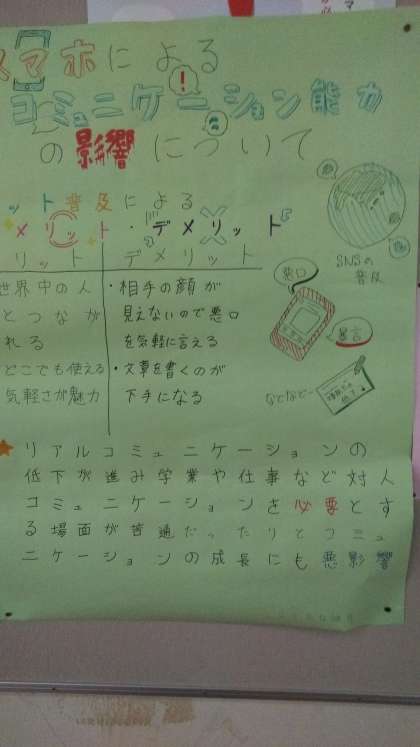 スマホによる
コミュニケーション能力
の影響について
ット普及による
メリット・デメリット
リット
デメリット
世界中の人
とつなが
れる
どこでも使える
気軽さが魅力
・相手の顔が
見えないので悪口
を気軽に言える
・文章を書くのが
下手になる
SNSの
普及
悪口
暴言
などなど…
リアルコミュニケーションの
低下が進み学業や仕事など対人
コミュニケーションを必要とす
る場面が苦通だったりとコミュ
ニケーションの成長にも悪影響